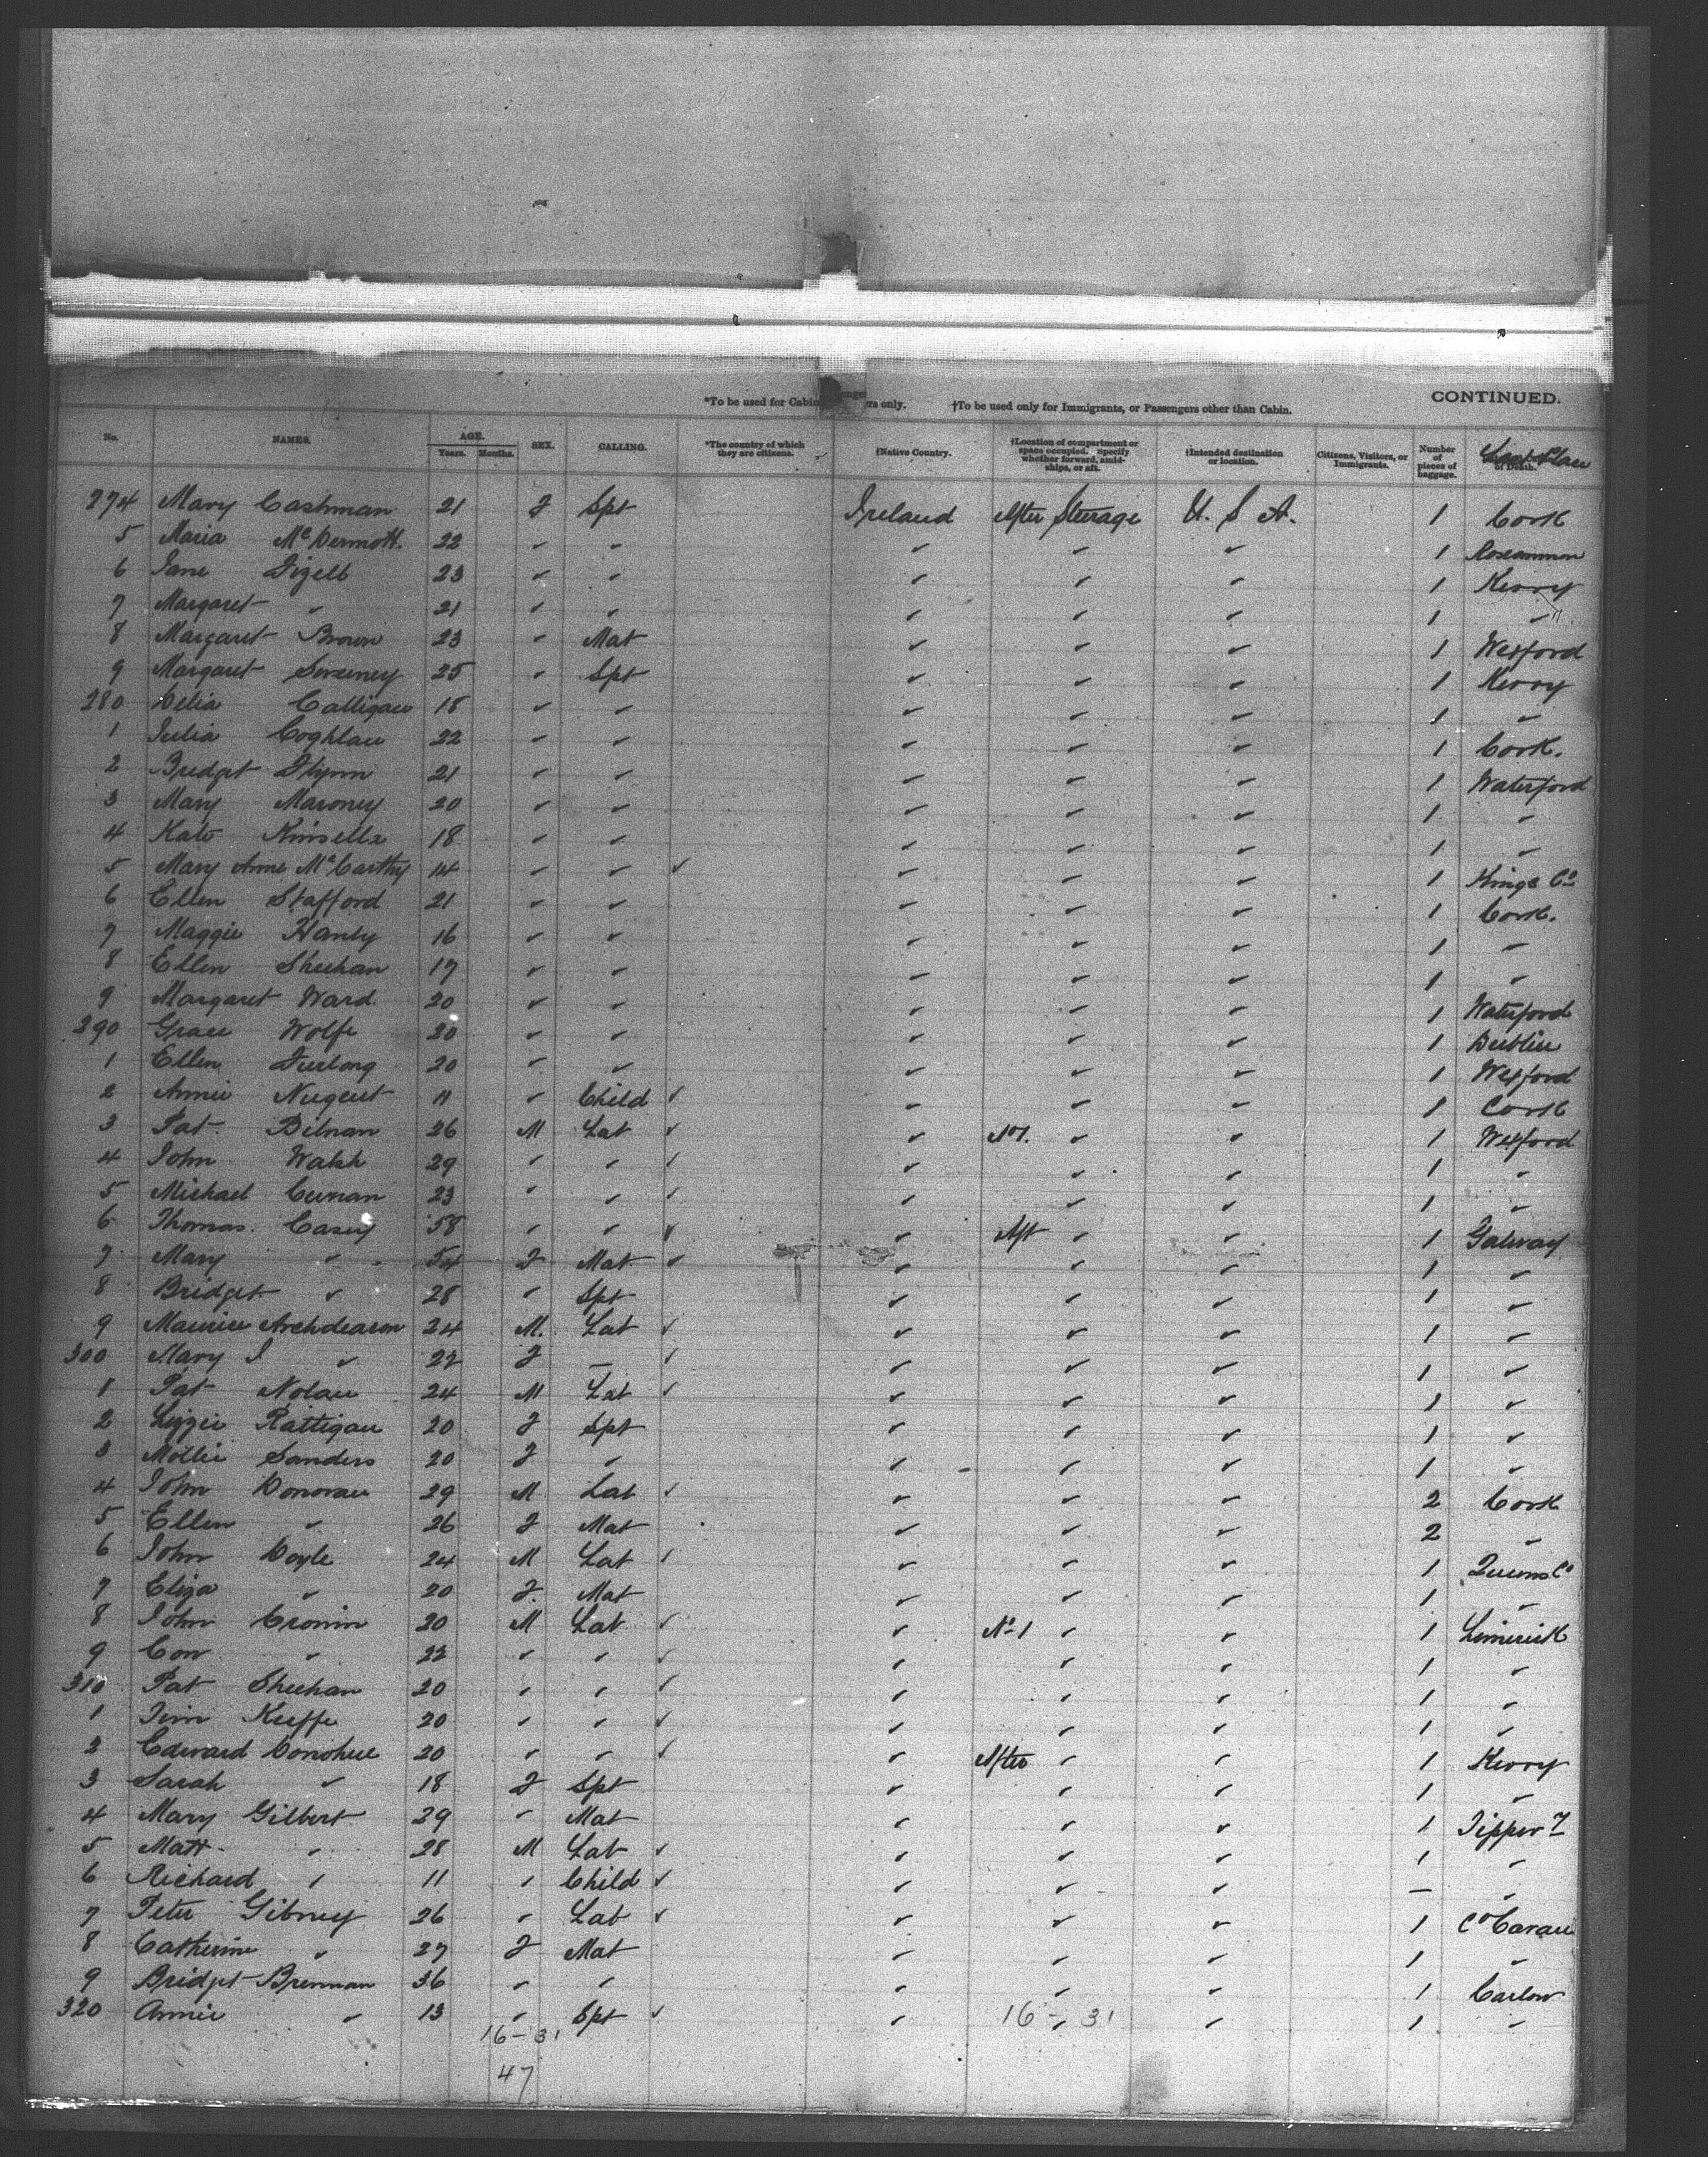 *To be used for Cabin Passengers only. †To be used only for Immigrants, or Passengers other than Cabin. CONTINUED.
No. NAMES. AGE. Years. Months. SEX. CALLING. *The country of which they are citizens. †Native Country. †Location of compartment or space occupied. Specify whether forward, amidships, or aft. †Intended destination or location. Citizens, Visitors, or Immigrants. Number of pieces of baggage. Last Place of Death.
274 Mary Cashman 21 F Spt Ireland After Steerage U. S A. 1 Cork
5 Maria McDermott. 22 " " " " " 1 Roscommon
6 Jane Fizell 23 " " " " " 1 Kerry
7 Margaret " 21 " " " " " 1 "
8 Margaret Brown 23 " Mat " " " 1 Wexford
9 Margaret Sweeney 25 " Spt " " " 1 Kerry
280 Delia Calligan 18 " " " " " 1 "
1 Julia Coghlan 22 " " " " " 1 Cork.
2 Bridget Flynn 21 " " " " " 1 Waterford
3 Mary Maroney 20 " " " " " 1 "
4 Kate Kinsella 18 " " " " " 1 "
5 Mary Anne McCarthy 14 " " ✓ " " " 1 Kings Co
6 Ellen Stafford 21 " " " " " 1 Cork.
7 Maggie Hanly 16 " " " " " 1 "
8 Ellen Sheehan 17 " " " " " 1 "
9 Margaret Ward 20 " " " " " 1 Waterford
290 Grace Wolfe 20 " " " " " 1 Dublin
1 Ellen Furlong 20 " " " " " 1 Wexford
2 Annie Nugent 11 " Child ✓ " " " 1 Cork
3 Pat Bilnan 26 M Lab ✓ " No1. " " 1 Wexford
4 John Walsh 29 " " ✓ " " " 1 "
5 Michael Curnan 23 " " ✓ " " " 1 "
6 Thomas Casey 58 " " ✓ " Aft " " 1 Galway
7 Mary " 54 F Mat ✓ " " " 1 "
8 Bridget " 28 " Spt " " " 1 "
9 Maurice Archdeacon 24 M. Lab ✓ " " " 1 "
300 Mary J " 22 F — ✓ " " " 1 "
1 Pat Nolan 24 M Lab ✓ " " " 1 "
2 Lizzie Rattigan 20 F Spt " " " 1 "
3 Mollie Sanders 20 F " " " " 1 "
4 John Donovan 29 M Lab ✓ " " " 2 Cork
5 Ellen " 26 F Mat " " " 2 "
6 John Doyle 24 M Lab ✓ " " " 1 Queens Co
7 Eliza " 20 F. Mat " " " 1 "
8 John Cronin 20 M Lab ✓ " No 1 " " 1 Limerick
9 Con " 22 " " ✓ " " " 1 "
310 Pat Sheehan 20 " " ✓ " " " 1 "
1 Tim Keeffe 20 " " ✓ " " " 1 "
2 Edward Donohue 20 " " ✓ " After " " 1 Kerry
3 Sarah " 18 F Spt " " " 1 "
4 Mary Gilbert 29 " Mat " " " 1 Tippery
5 Matt " 28 M Lab ✓ " " " 1 "
6 Richard " 11 " Child ✓ " " " — "
7 Peter Gibney 26 " Lab ✓ " " " 1 Co Cavan
8 Catherine " 27 F Mat " " " 1 "
9 Bridget Brennan 36 " " " " " 1 Carlow
320 Annie " 13 " Spt ✓ " " " 1 "
16 - 31 16 - 31
47